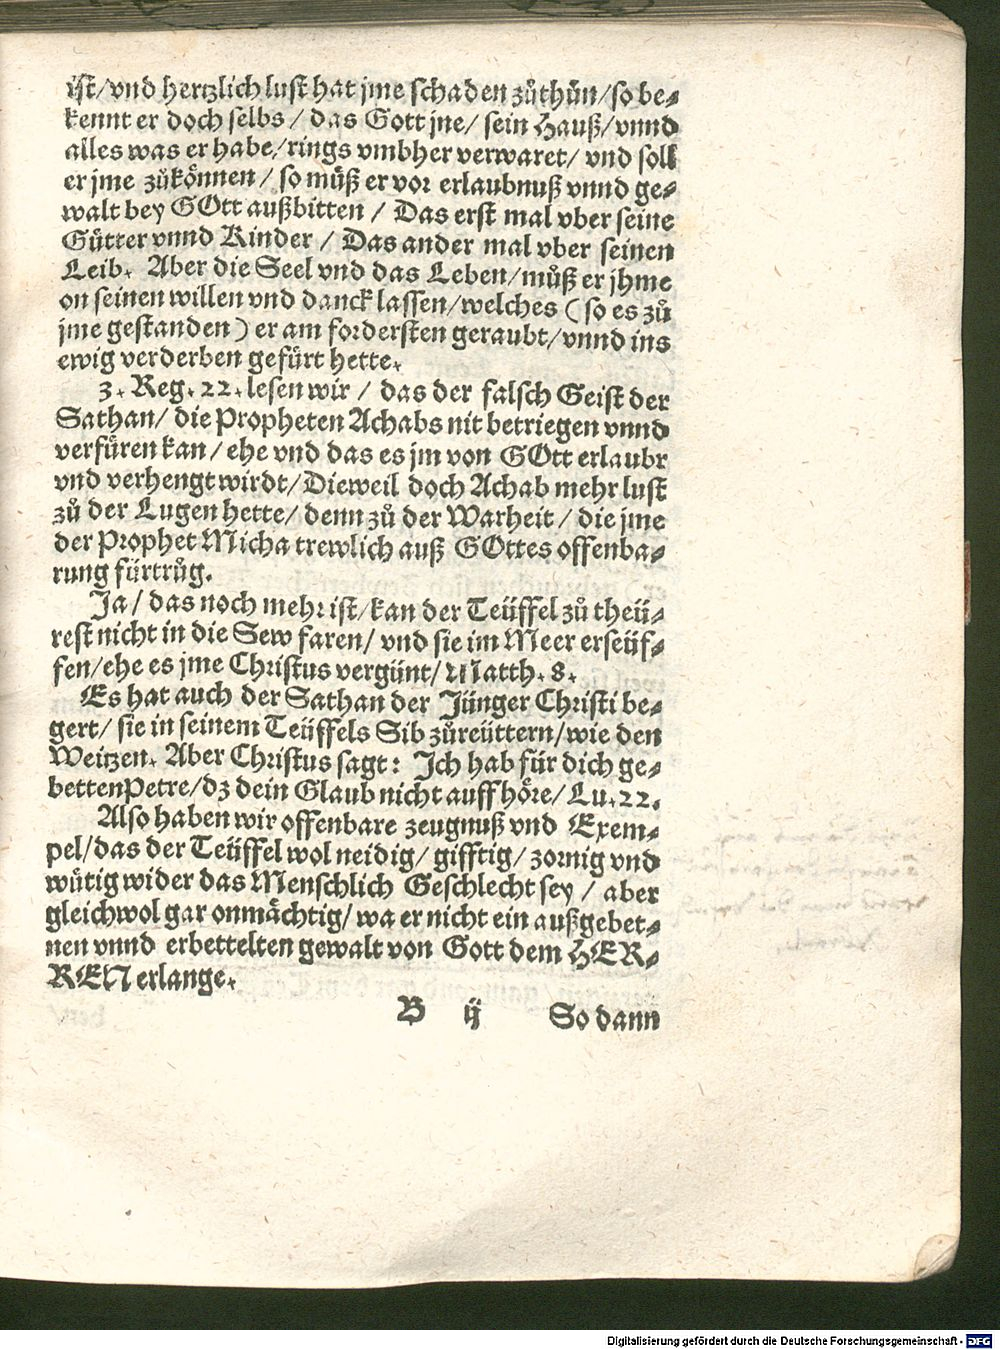 ist/vnd hertzlich lust hat jme schaden zůthůn/so be⸗
kennt er doch selbs / das Gott jne/ sein Hauß/vnnd
alles was er habe/rings vmbher verwaret/ vnd soll
er jme zůkönnen / so můß er vor erlaubnuß vnnd ge⸗
walt bey GOtt außbitten / Das erst mal vber seine
Gütter vnnd Kinder / Das ander mal vber seinen
Leib. Aber die Seel vnd das Leben/můß er jhme
on seinen willen vnd danck lassen/welches ( so es zů
jme gestanden ) er am fordersten geraubt/vnnd ins
ewig verderben gefürt hette.
3. Reg. 22. lesen wir / das der falsch Geist der
Sathan/ die Propheten Achabs nit betriegen vnnd
verfüren kan / ehe vnd das es jm von GOtt erlaubt
vnd verhengt wirdt/Dieweil doch Achab mehr lust
zů der Lugen hette/ denn zů der Warheit / die jme
der Prophet Micha trewlich auß GOttes offenba⸗
rung fürtrůg.
Ja / das noch mehr ist/kan der Teüffel zů theü⸗
rest nicht in die Sew faren/ vnd sie im Meer erseüf⸗
fen/ehe es jme Christus vergünt/ Matth. 8.
Es hat auch der Sathan der Jünger Christi be⸗
gert/ sie in seinem Teüffels Sib zůreüttern/wie den
Weitzen. Aber Christus sagt: Ich hab für dich ge⸗
betten Petre/dz dein Glaub nicht auffhöre/ Lu. 22.
Also haben wir offenbare zeugnuß vnd Exem⸗
pel/das der Teüffel wol neidig/ gifftig/ zornig vnd
wütig wider das Menschlich Geschlecht sey / aber
gleichwol gar onmächtig/ wa er nicht ein außgebet⸗
nen vnnd erbettelten gewalt von Gott dem HER⸗
REN erlange.
B ij So dann
Digitalisierung gefördert durch die Deutsche Forschungsgemeinschaft - DFG